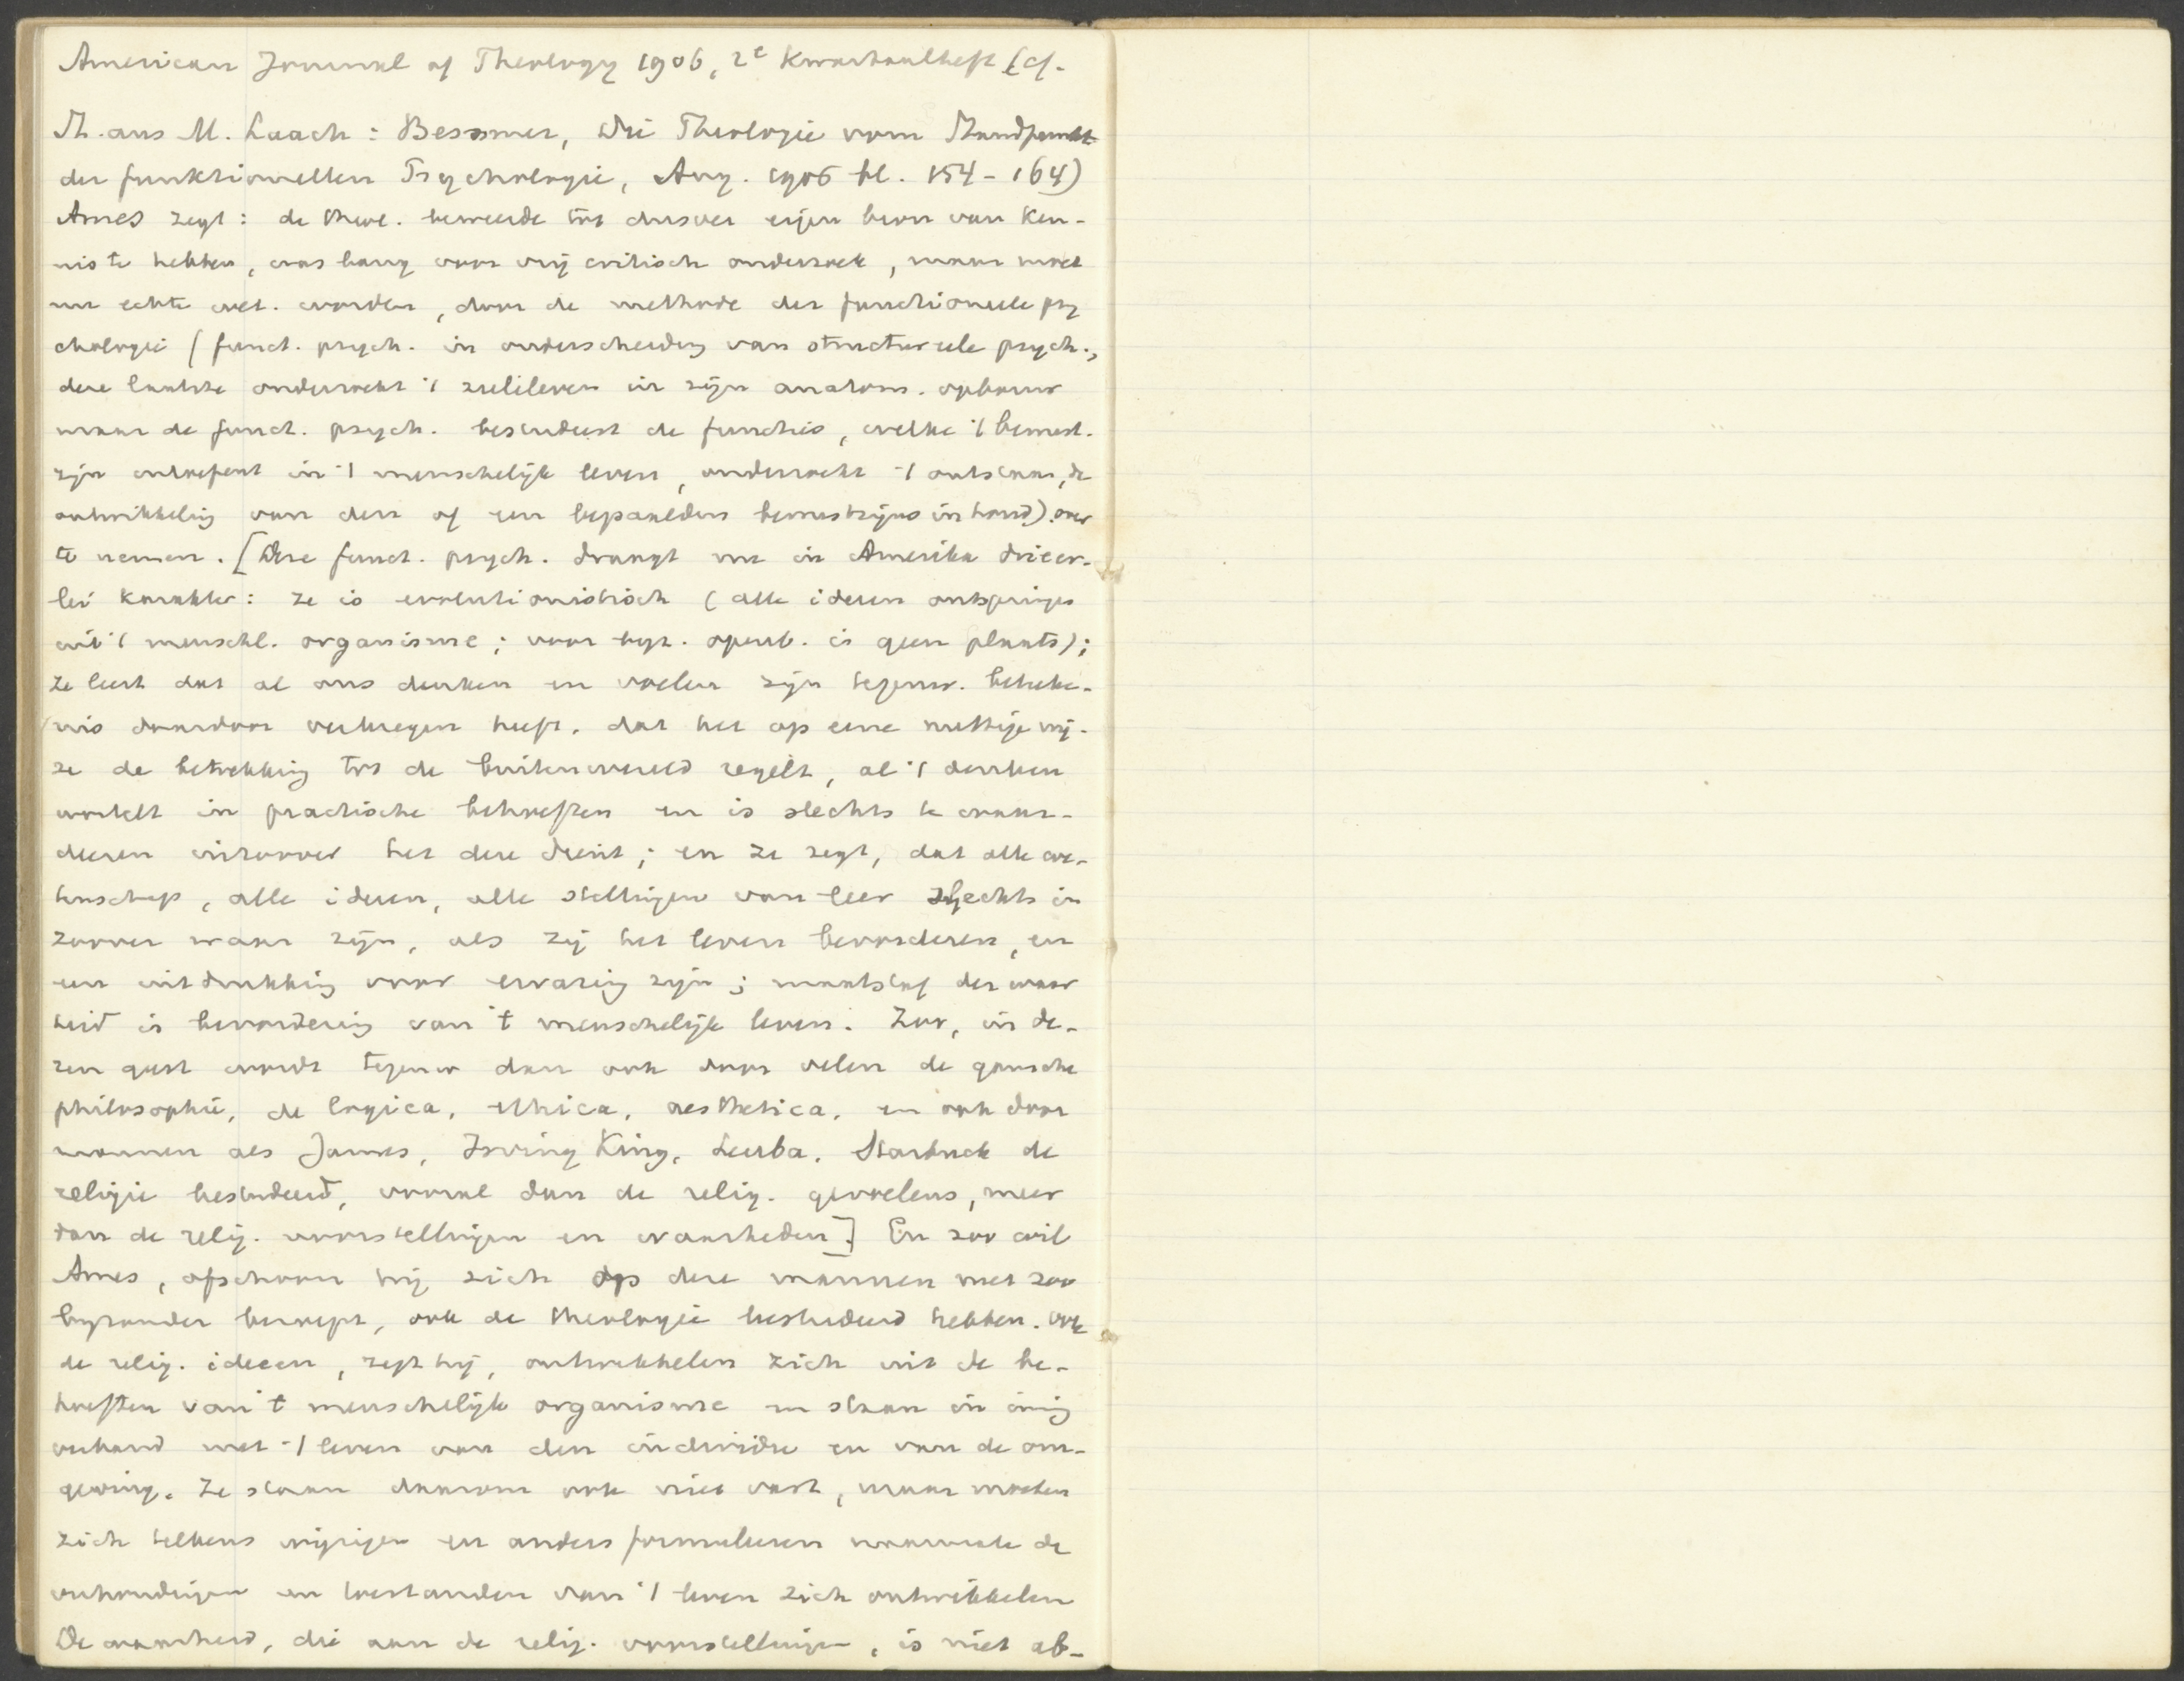 American Journal of Theology 1906, 2e Kwartaalheft (cf.
St. aus M. Laach: Bessmer, Die Theologie vom Standpunkt
der funktionellen Psychologie, Aug. 1906 bl. 154-164)
Ames zegt: de theol. beweerde tot dusver eigen bron van ken-
nis te hebben, was bang voor vrij critisch onderzoek, maar moet
nu echte wet. worden, door de methode der functioneele psy
chologie (funct. psych. in onderscheiding van structureele psych.,
deze laatste onderzoekt 't zieleleven in zijn anatom. opbouw
maar de funct. psych. bestudeert de functies, welke 't bewust-
zijn uitoefent in 't menschelijk leven, onderzoekt 't ontstaan, de
ontwikkeling van den of een bepaalden bewustzijnsinhoud). over
te nemen. [Deze funct. psych. draagt nu in Amerika drieër-
lei karakter: ze is evolutionistisch (alle ideeen ontspringen
uit 't menschl. organisme; voor byz. openb. is geen plaats);
ze leert dat al ons denken en voelen zijn tegenw. beteke-
nis daardoor verkregen heeft, dat het op eene nuttige wij-
ze de betrekking tot de buitenwereld regelt, al 't denken
wortelt in practische behoeften en is slechts te waar-
deeren inzoover het deze dient; en ze zegt, dat alle we-
tenschap, alle ideeen, alle stellingen van leer slechts in
zoover waar zijn, als zij het leven bevorderen, en
een uitdrukking voor ervaring zijn; maatstaf der waar
heid is bevordering van 't menschelijk leven. Zoo, in de-
zen geest wordt tegenw dan ook door velen de gansche
philosophie, de logica, ethica, aesthetica, en ook door
mannen als James, Irving King, Leuba, Starbuck de
religie bestudeerd, vooral dan de relig. gevoelens, meer
dan de relig. voorstellingen en waarheden.] En zoo wil
Ames, ofschoon hij zich op deze mannen niet zoo
byzonder beroept, ook de theologie bestudeerd hebben. Ook
de relig. ideeen, zegt hij, ontwikkelen zich uit de be-
hoeften van 't menschelijk organisme en staan in innig
verband met 't leven van den individu en van de om-
geving. Ze staan daarom ook niet vast, maar moeten
zich telkens wijzigen en anders formuleeren naarmate de
verhoudingen en toestanden van 't leven zich ontwikkelen
De waarheid, die aan de relig. voorstellingen, is niet ab-